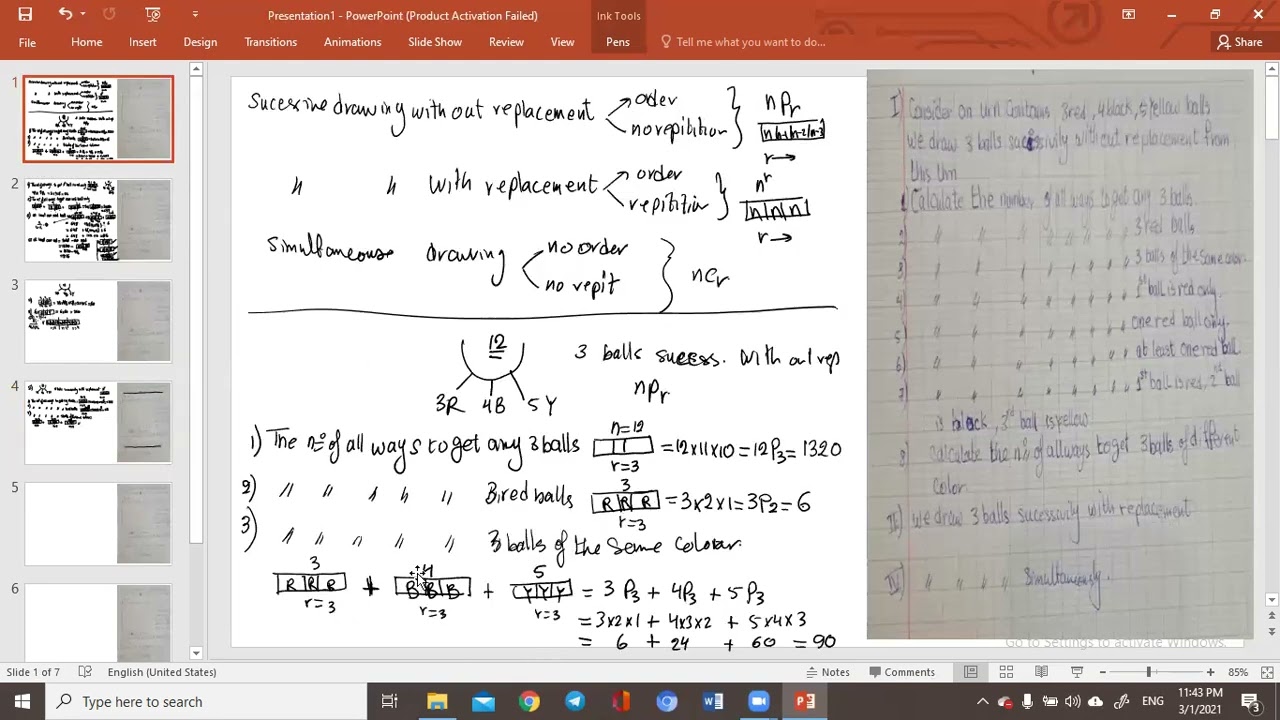 Presentation1 - PowerPoint (Product Activation Failed)
Ink Tools
File
Home
Insert
Design
Transitions
Animations
Slide Show
Review
View
Pens
Tell me what you want to do...
Share
1
2
3
4
5
6
Sucessive drawing without replacement
oder
no repitition
nPr
n n-1 n-2 n-3
r→
〃 〃 with replacement
order
repitition
n^r
n n n
r→
Simultaneous drawing
no order
no repit
nCr
12
3R 4B 5Y
3 balls success. without rep
nPr
1) The nº of all ways to get any 3 balls
n=12
r=3
=12x11x10=12P3=1320
2) 〃 〃 〃 〃 〃 3 red balls
3
R R R
r=3
=3x2x1=3P2=6
3) 〃 〃 〃 〃 〃 3 balls of the same colour.
3 4 5
R R R + B B B + Y Y Y = 3P3 + 4P3 + 5P3
r=3 r=3 r=3
= 3x2x1 + 4x3x2 + 5x4x3
= 6 + 24 + 60 = 90
I) Consider an Urn Contains 3red, 4black, 5yellow balls
we draw 3 balls sucessivily without replacement from
this Urn
1 Calculate the number of all ways to get any 3 balls.
2) 〃 〃 〃 〃 〃 〃 〃 3 red balls
3) 〃 〃 〃 〃 〃 〃 3 balls of the same color.
4) 〃 〃 〃 〃 〃 〃 1st ball is red only.
5) 〃 〃 〃 〃 〃 〃 one red ball only.
6) 〃 〃 〃 〃 〃 〃 at least one red ball
7) 〃 〃 〃 〃 〃 〃 1st ball is red, 2nd ball
is black, 3rd ball is yellow
8) calculate the nº of all ways to get 3 balls of different
color.
II) we draw 3 balls sucessivily with replacement
IV) 〃 〃 〃 〃 Simultaneously.
Go to Settings to activate Windows.
Slide 1 of 7
English (United States)
Notes
Comments
85%
Type here to search
ENG
11:43 PM
3/1/2021
3